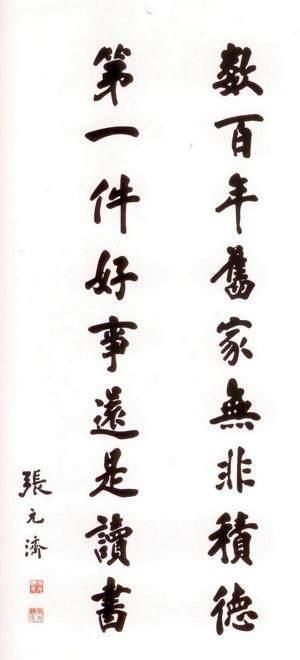 數百年舊家無非積德
第一件好事還是讀書
張元濟